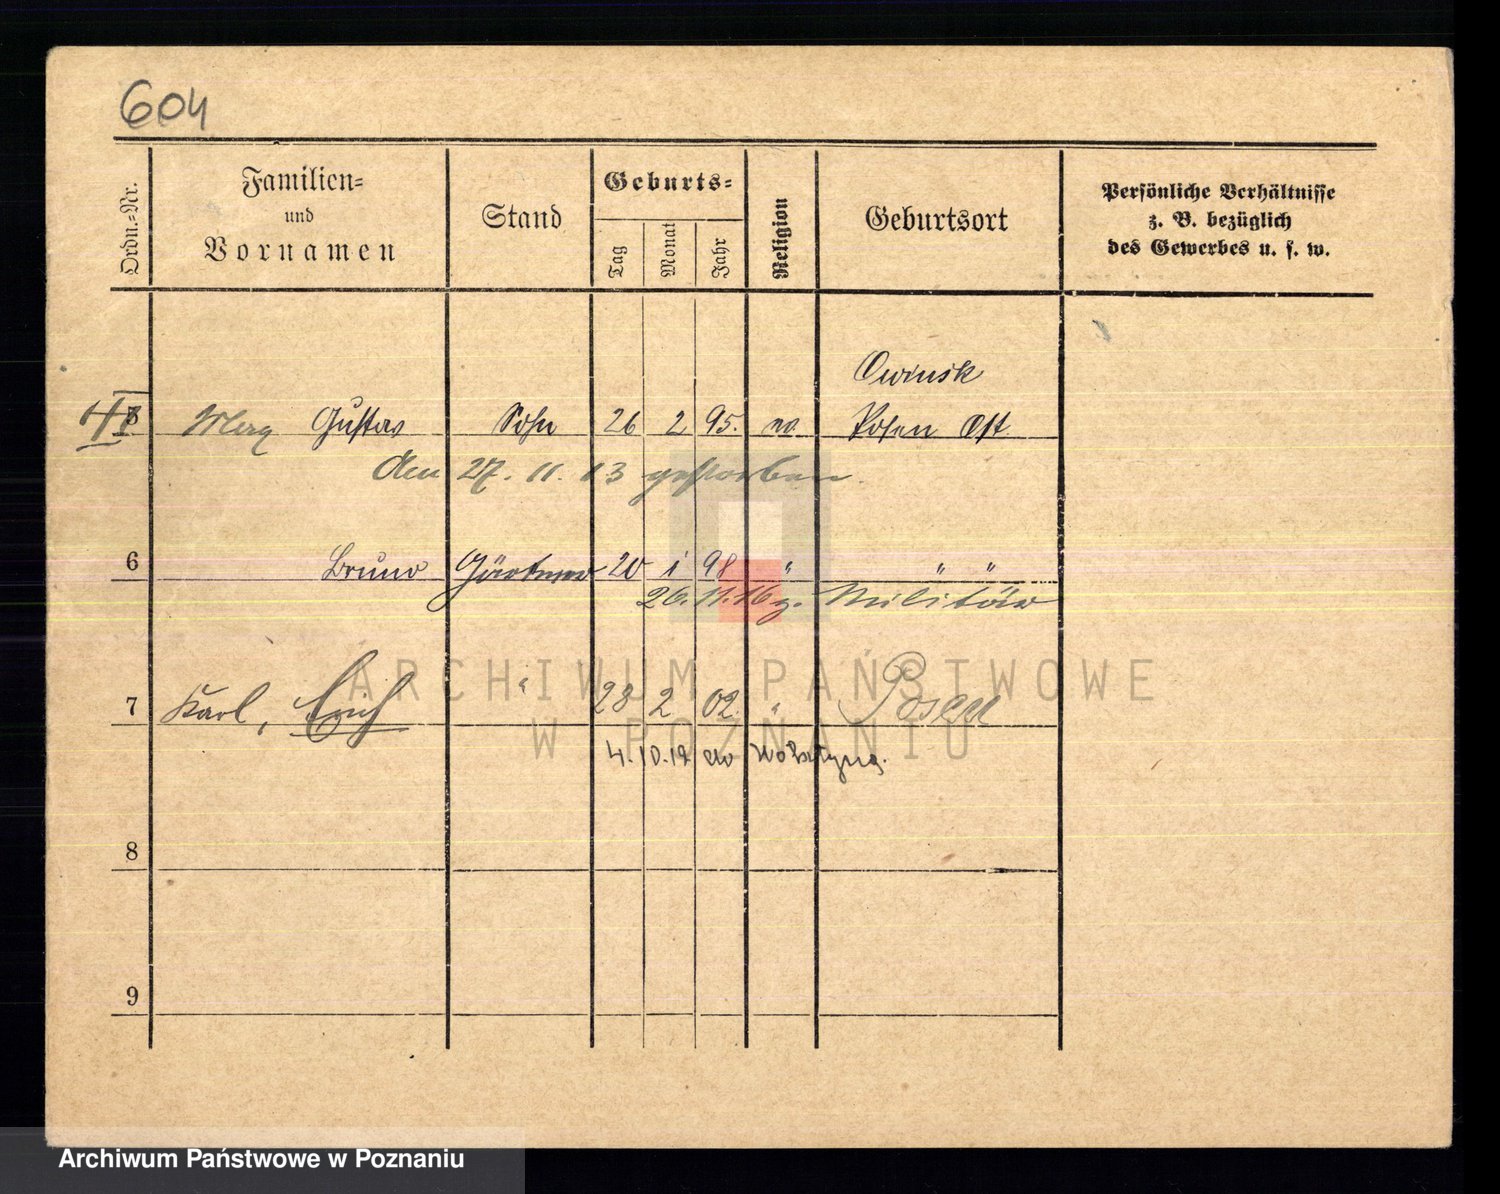 604
Ordn.-Nr.
Familien-
und
Vornamen
Stand
Geburts-
Tag
Monat
Jahr
Religion
Geburtsort
Persönliche Verhältnisse
z. B. bezüglich
des Gewerbes u. s. w.
Owinsk
Gustav Sohn 26 2 95. ev Posen Ost
den 27. 11. 13 gestorben.
6 Bruno Gärtner 20 1 98 " " "
26. 11. 16 z. Militär
ARCHIWUM PAŃSTWOWE
W POZNANIU
7 Karl, Erich " 28 2 02 " Posen
4.10.19 do Wolsztyna.
8
9
Archiwum Państwowe w Poznaniu